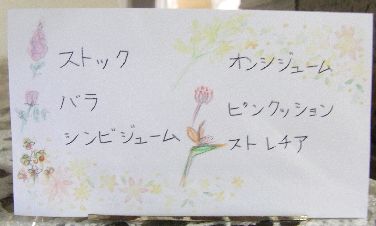 ストック
バラ
シンビジューム
オンシジューム
ピンクッション
ストレチア